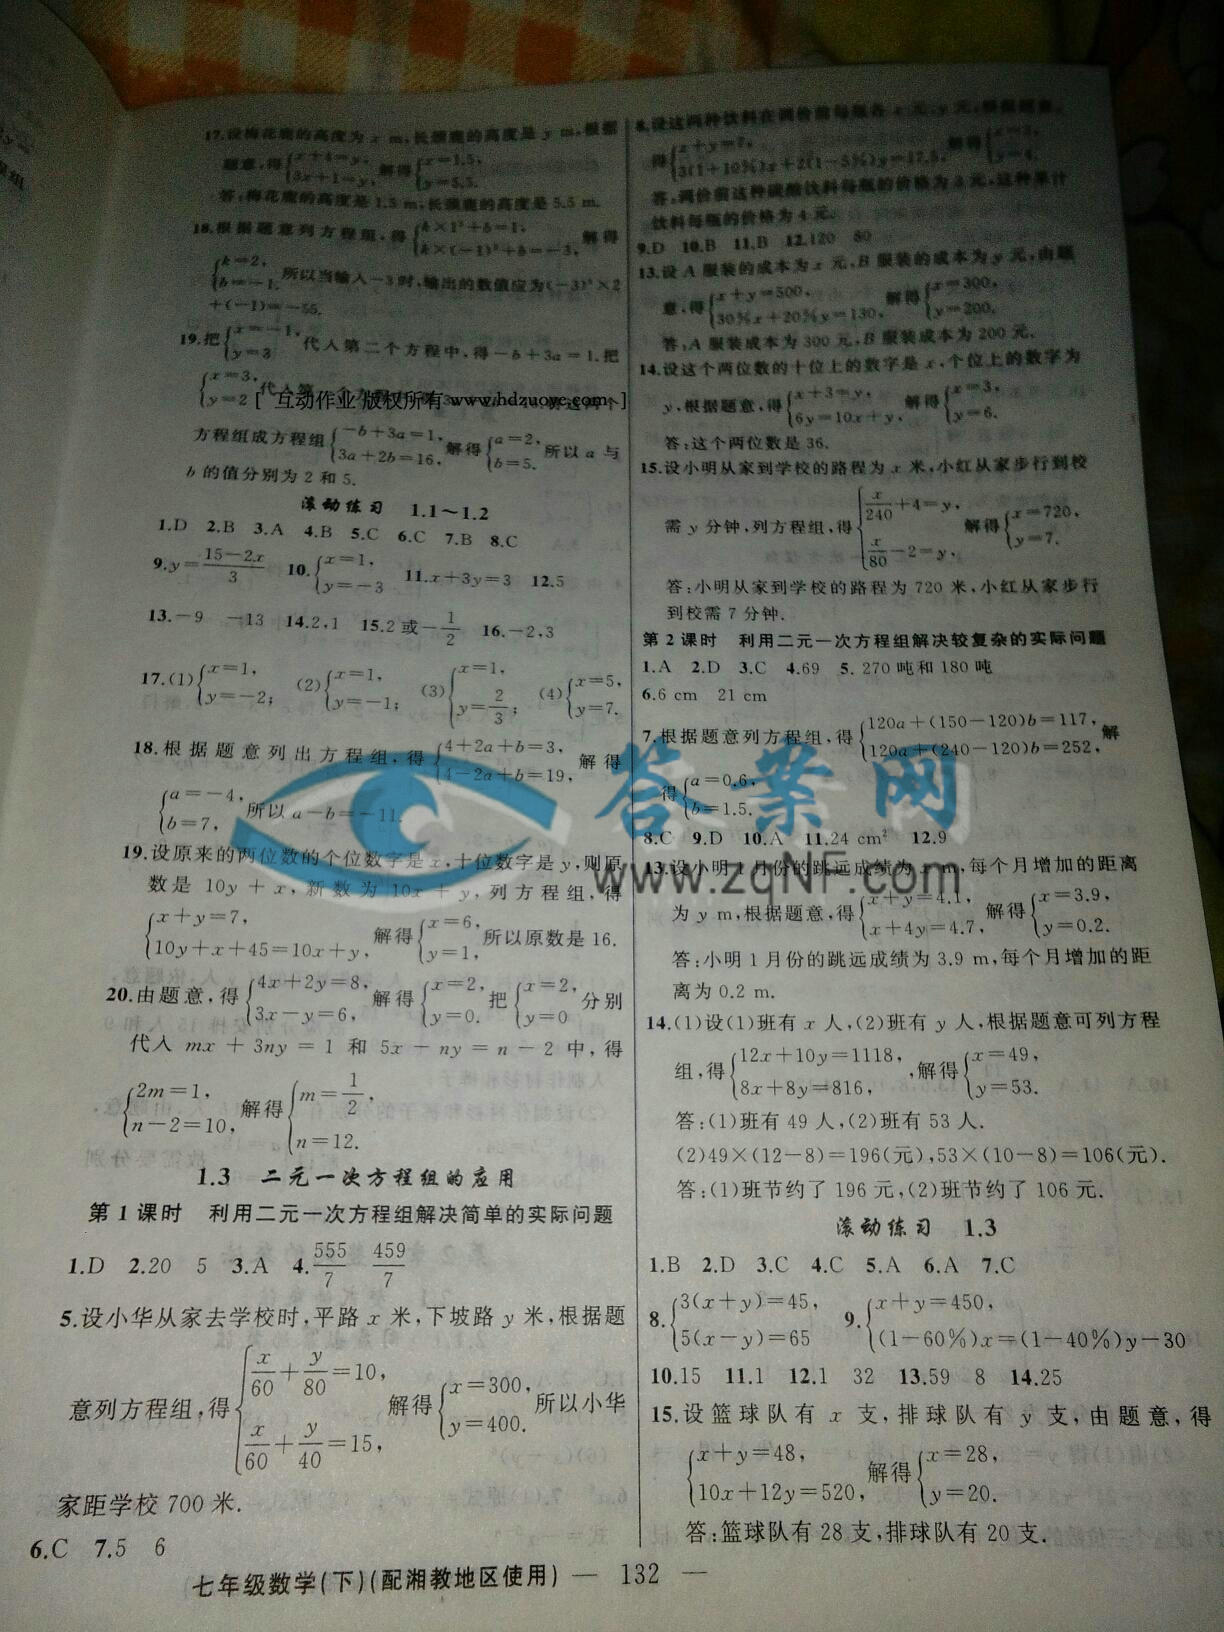 17.设梅花鹿的高度为 x m,长颈鹿的高度是 y m,根据
题意,得{x+4=y, 3x+1=y, 解得{x=1.5, y=5.5.
答:梅花鹿的高度是1.5 m,长颈鹿的高度是5.5 m.
18.根据题意列方程组,得{k×1³+b=1, k×(-1)³+b=-3, 解得
{k=2, b=-1, 所以当输入-3时,输出的数值应为(-3)³×2
+(-1)=-55.
19.把{x=-1, y=3 代入第二个方程中,得-b+3a=1.把
{x=3, y=2 代入第一个方程
[ 互动作业 版权所有 www.hdzuoye.com ]
方程组成方程组{-b+3a=1, 3a+2b=16, 解得{a=2, b=5. 所以 a 与
b 的值分别为 2 和 5.
滚动练习 1.1～1.2
1.D 2.B 3.A 4.B 5.C 6.C 7.B 8.C
9.y=(15-2x)/3 10.{x=1, y=-3 11.x+3y=3 12.5
13.-9 -13 14.2,1 15.2或-1/2 16.-2,3
17.(1){x=1, y=-2; (2){x=1, y=-1; (3){x=1, y=2/3; (4){x=5, y=7.
18.根据题意列出方程组,得{4+2a+b=3, 4-2a+b=19, 解得
{a=-4, b=7, 所以 a-b=-11.
19.设原来的两位数的个位数字是 x,十位数字是 y,则原
数是 10y + x,新数为 10x + y,列方程组,得
{x+y=7, 10y+x+45=10x+y, 解得{x=6, y=1, 所以原数是 16.
20.由题意,得{4x+2y=8, 3x-y=6, 解得{x=2, y=0. 把{x=2, y=0 分别
代入 mx + 3ny = 1 和 5x - ny = n - 2 中,得
{2m=1, n-2=10, 解得{m=1/2, n=12.
1.3 二元一次方程组的应用
第 1 课时 利用二元一次方程组解决简单的实际问题
1.D 2.20 5 3.A 4.555/7 459/7
5.设小华从家去学校时,平路 x 米,下坡路 y 米,根据题
意列方程组,得{x/60+y/80=10, x/60+y/40=15, 解得{x=300, y=400. 所以小华
家距学校 700 米.
6.C 7.5 6
8.设这两种饮料在调价前每瓶各 x 元、y 元,根据题意,
得{x+y=7, 3(1+10%)x+2(1-5%)y=17.5, 解得{x=3, y=4.
答:调价前这种碳酸饮料每瓶的价格为 3 元,这种果汁
饮料每瓶的价格为 4 元.
9.D 10.B 11.B 12.120 80
13.设 A 服装的成本为 x 元,B 服装的成本为 y 元,由题
意,得{x+y=500, 30%x+20%y=130, 解得{x=300, y=200.
答:A 服装成本为 300 元,B 服装成本为 200 元.
14.设这个两位数的十位上的数字是 x,个位上的数字为
y,根据题意,得{x+3=y, 6y=10x+y, 解得{x=3, y=6.
答:这个两位数是 36.
15.设小明从家到学校的路程为 x 米,小红从家步行到校
需 y 分钟,列方程组,得{x/240+4=y, x/80-2=y, 解得{x=720, y=7.
答:小明从家到学校的路程为 720 米,小红从家步行
到校需 7 分钟.
第 2 课时 利用二元一次方程组解决较复杂的实际问题
1.A 2.D 3.C 4.69 5.270 吨和 180 吨
6.6 cm 21 cm
7.根据题意列方程组,得{120a+(150-120)b=117, 120a+(240-120)b=252, 解
得{a=0.6, b=1.5.
8.C 9.D 10.A 11.24 cm² 12.9
13.设小明 1 月份的跳远成绩为 x m,每个月增加的距离
为 y m,根据题意,得{x+y=4.1, x+4y=4.7, 解得{x=3.9, y=0.2.
答:小明 1 月份的跳远成绩为 3.9 m,每个月增加的距
离为 0.2 m.
14.(1)设(1)班有 x 人,(2)班有 y 人,根据题意可列方程
组,得{12x+10y=1118, 8x+8y=816, ,解得{x=49, y=53.
答:(1)班有 49 人,(2)班有 53 人.
(2)49×(12-8)=196(元),53×(10-8)=106(元).
答:(1)班节约了 196 元,(2)班节约了 106 元.
滚动练习 1.3
1.B 2.D 3.C 4.C 5.A 6.A 7.C
8.{3(x+y)=45, 5(x-y)=65 9.{x+y=450, (1-60%)x=(1-40%)y-30
10.15 11.1 12.1 32 13.59 8 14.25
15.设篮球队有 x 支,排球队有 y 支,由题意,得
{x+y=48, 10x+12y=520, 解得{x=28, y=20.
答:篮球队有 28 支,排球队有 20 支.
七年级数学(下)(配湘教地区使用) — 132 —
答案网
www.zqNF.com